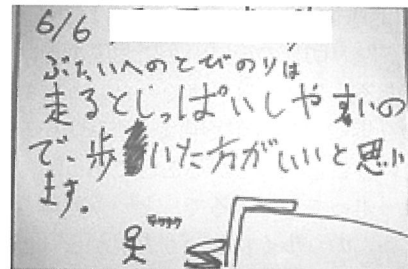 6/6
ぶたいへのとびのりは
走るとじっぱいしや直いの
で、歩いた方がいいと思い
ます。
テクテク